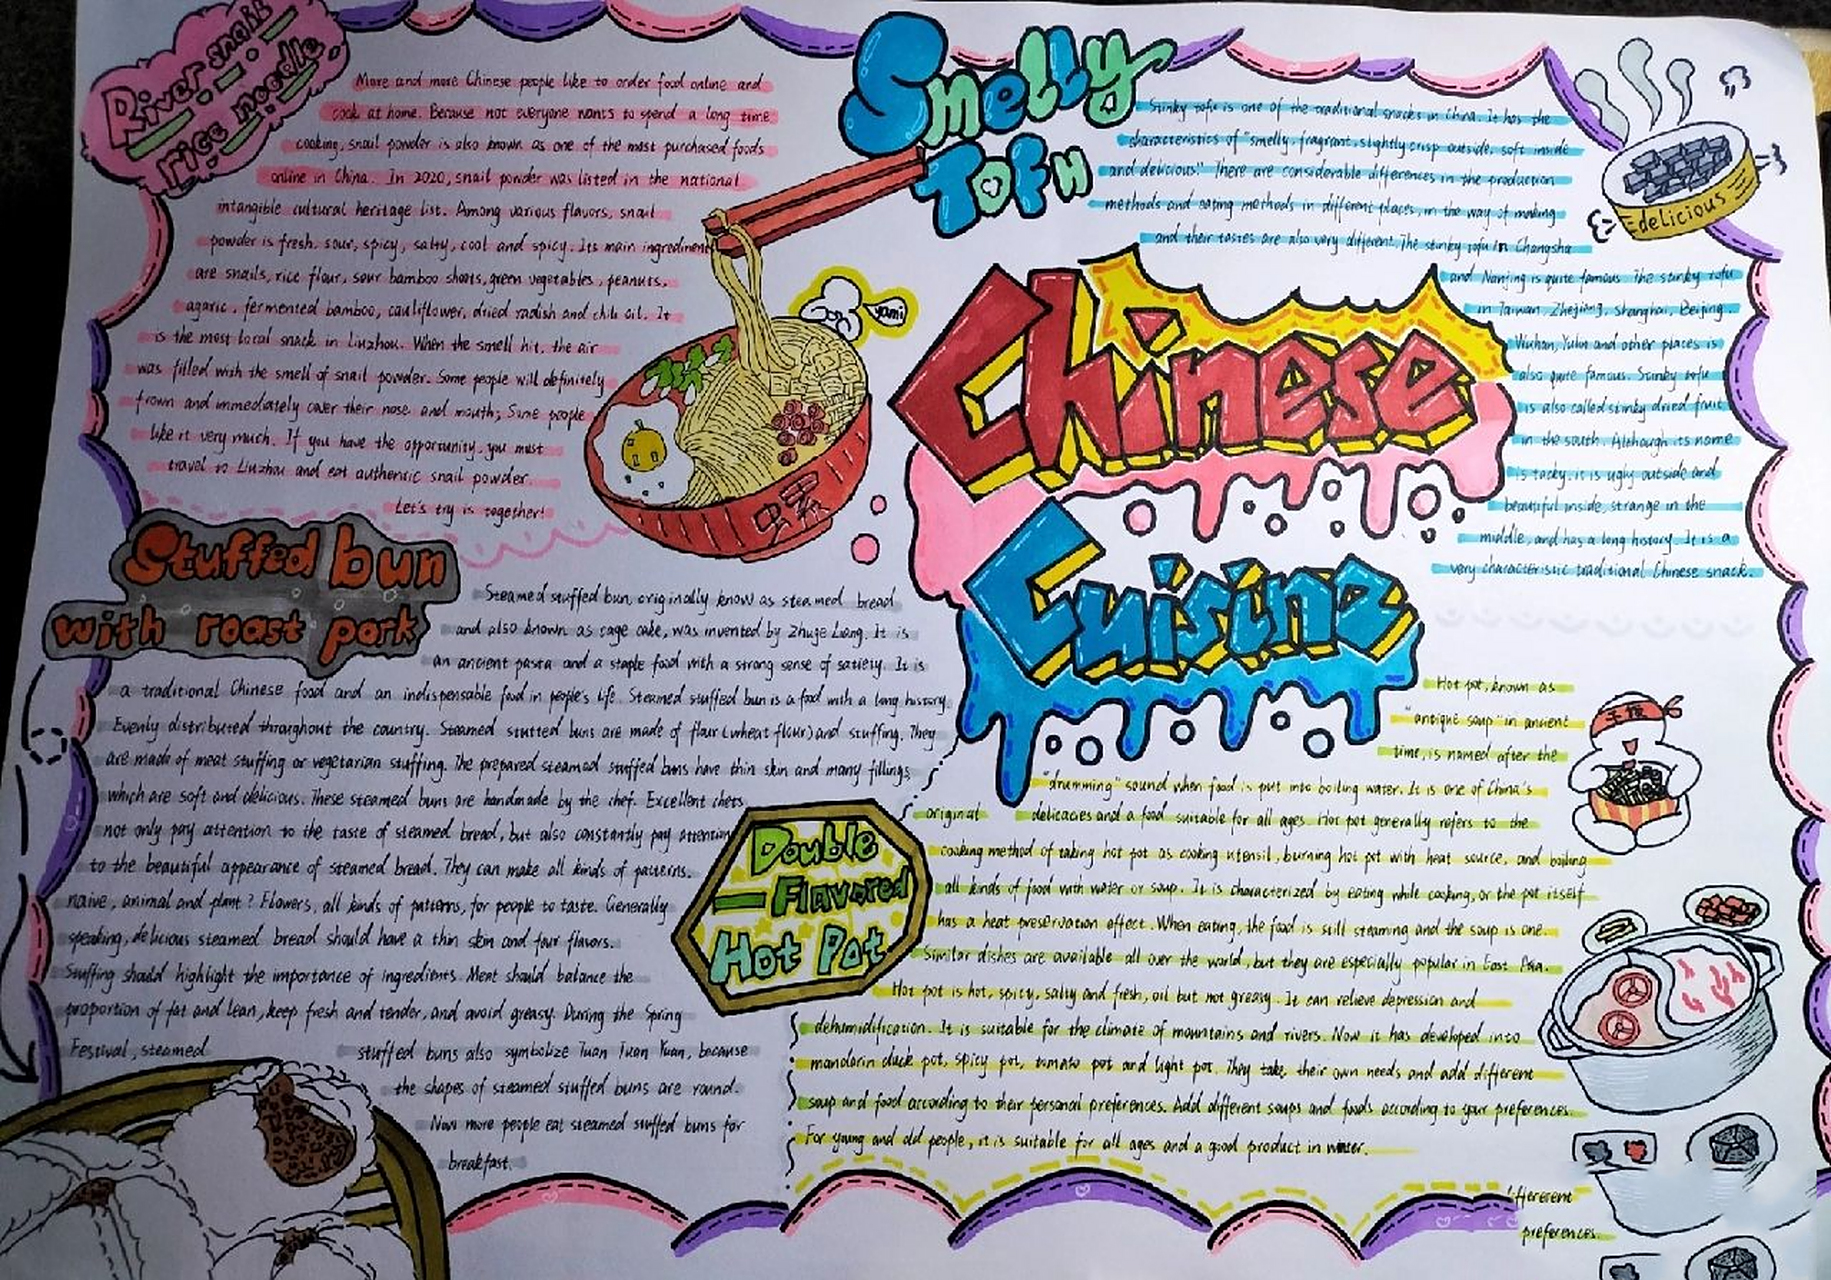 River snail
rice noodle
More and more Chinese people like to order food online and
cook at home. Because not everyone wants to spend a long time
cooking, snail powder is also known as one of the most purchased foods
online in China. In 2020, snail powder was listed in the national
intangible cultural heritage list. Among various flavors, snail
powder is fresh, sour, spicy, salty, cool and spicy. Its main ingredinents
are snails, rice flour, sour bamboo shoots, green vegetables, peanuts,
agaric, fermented bamboo, cauliflower, dried radish and chili oil. It
is the most local snack in Liuzhou. When the smell hit, the air
was filled with the smell of snail powder. Some people will definitely
frown and immediately cover their nose and mouth; Some people
like it very much. If you have the opportunity, you must
travel to Liuzhou and eat authentic snail powder.
Let's try is together!
yami
Smelly
Tofu
Stinky tofu is one of the traditional snacks in China. It has the
characteristics of "smelly, fragrant, slightly crisp outside, soft inside
and delicious." There are considerable differences in the production
methods and eating methods in different places, in the way of making
and their tastes are also very different. The stinky tofu in Changsha
and Nanjing is quite famous. The stinky tofu
in Taiwan, Zhejiang, Shanghai, Beijing,
Wuhan, Yulin and other places is
also quite famous. Stinky tofu
is also called stinky dried fruit
in the south. Although its name
is tacky, it is ugly outside and
beautiful inside, strange in the
middle, and has a long history. It is a
very characteristic traditional Chinese snack.
delicious
Chinese
Cuisine
Stuffed bun
with roast pork
Steamed stuffed bun, originally know as steamed bread
and also known as cage cake, was invented by Zhuge Liang. It is
an ancient pasta and a staple food with a strong sense of satiety. It is
a traditional Chinese food and an indispensable food in people's life. Steamed stuffed bun is a food with a long history.
Evenly distributed throughout the country. Steamed stuffed buns are made of flour (wheat flour) and stuffing. They
are made of meat stuffing or vegetarian stuffing. The prepared steamed stuffed buns have thin skin and many fillings,
which are soft and delicious. These steamed buns are handmade by the chef. Excellent chefs
not only pay attention to the taste of steamed bread, but also constantly pay attention
to the beautiful appearance of steamed bread. They can make all kinds of patterns.
naive, animal and plant? Flowers, all kinds of patterns, for people to taste. Generally
speaking, delicious steamed bread should have a thin skin and four flavors.
Stuffing should highlight the importance of ingredients. Meat should balance the
proportion of fat and lean, keep fresh and tender, and avoid greasy. During the Spring
Festival, steamed stuffed buns also symbolize Tuan Tuan Yuan, because
the shapes of steamed stuffed buns are round.
Now more people eat steamed stuffed buns for
breakfast.
Double
— Flavored
Hot Pot
Hot pot, known as
"antique soup" in ancient
time, is named after the
"drumming" sound when food is put into boiling water. It is one of China's
original delicacies and a food suitable for all ages. Hot pot generally refers to the
cooking method of taking hot pot as cooking utensil, burning hot pot with heat source, and boiling
all kinds of food with water or soup. It is characterized by eating while cooking, or the pot itself
has a heat preservation effect. When eating, the food is still steaming and the soup is one.
Similar dishes are available all over the world, but they are especially popular in East Asia.
Hot pot is hot, spicy, salty and fresh, oil but not greasy. It can relieve depression and
dehumidification. It is suitable for the climate of mountains and rivers. Now it has developed into
mandarin duck pot, spicy pot, tomato pot and light pot. They take their own needs and add different
soup and food according to their personal preferences. Add different soups and foods according to your preferences.
For young and old people, it is suitable for all ages and a good product in winter.
fferent
preferences.